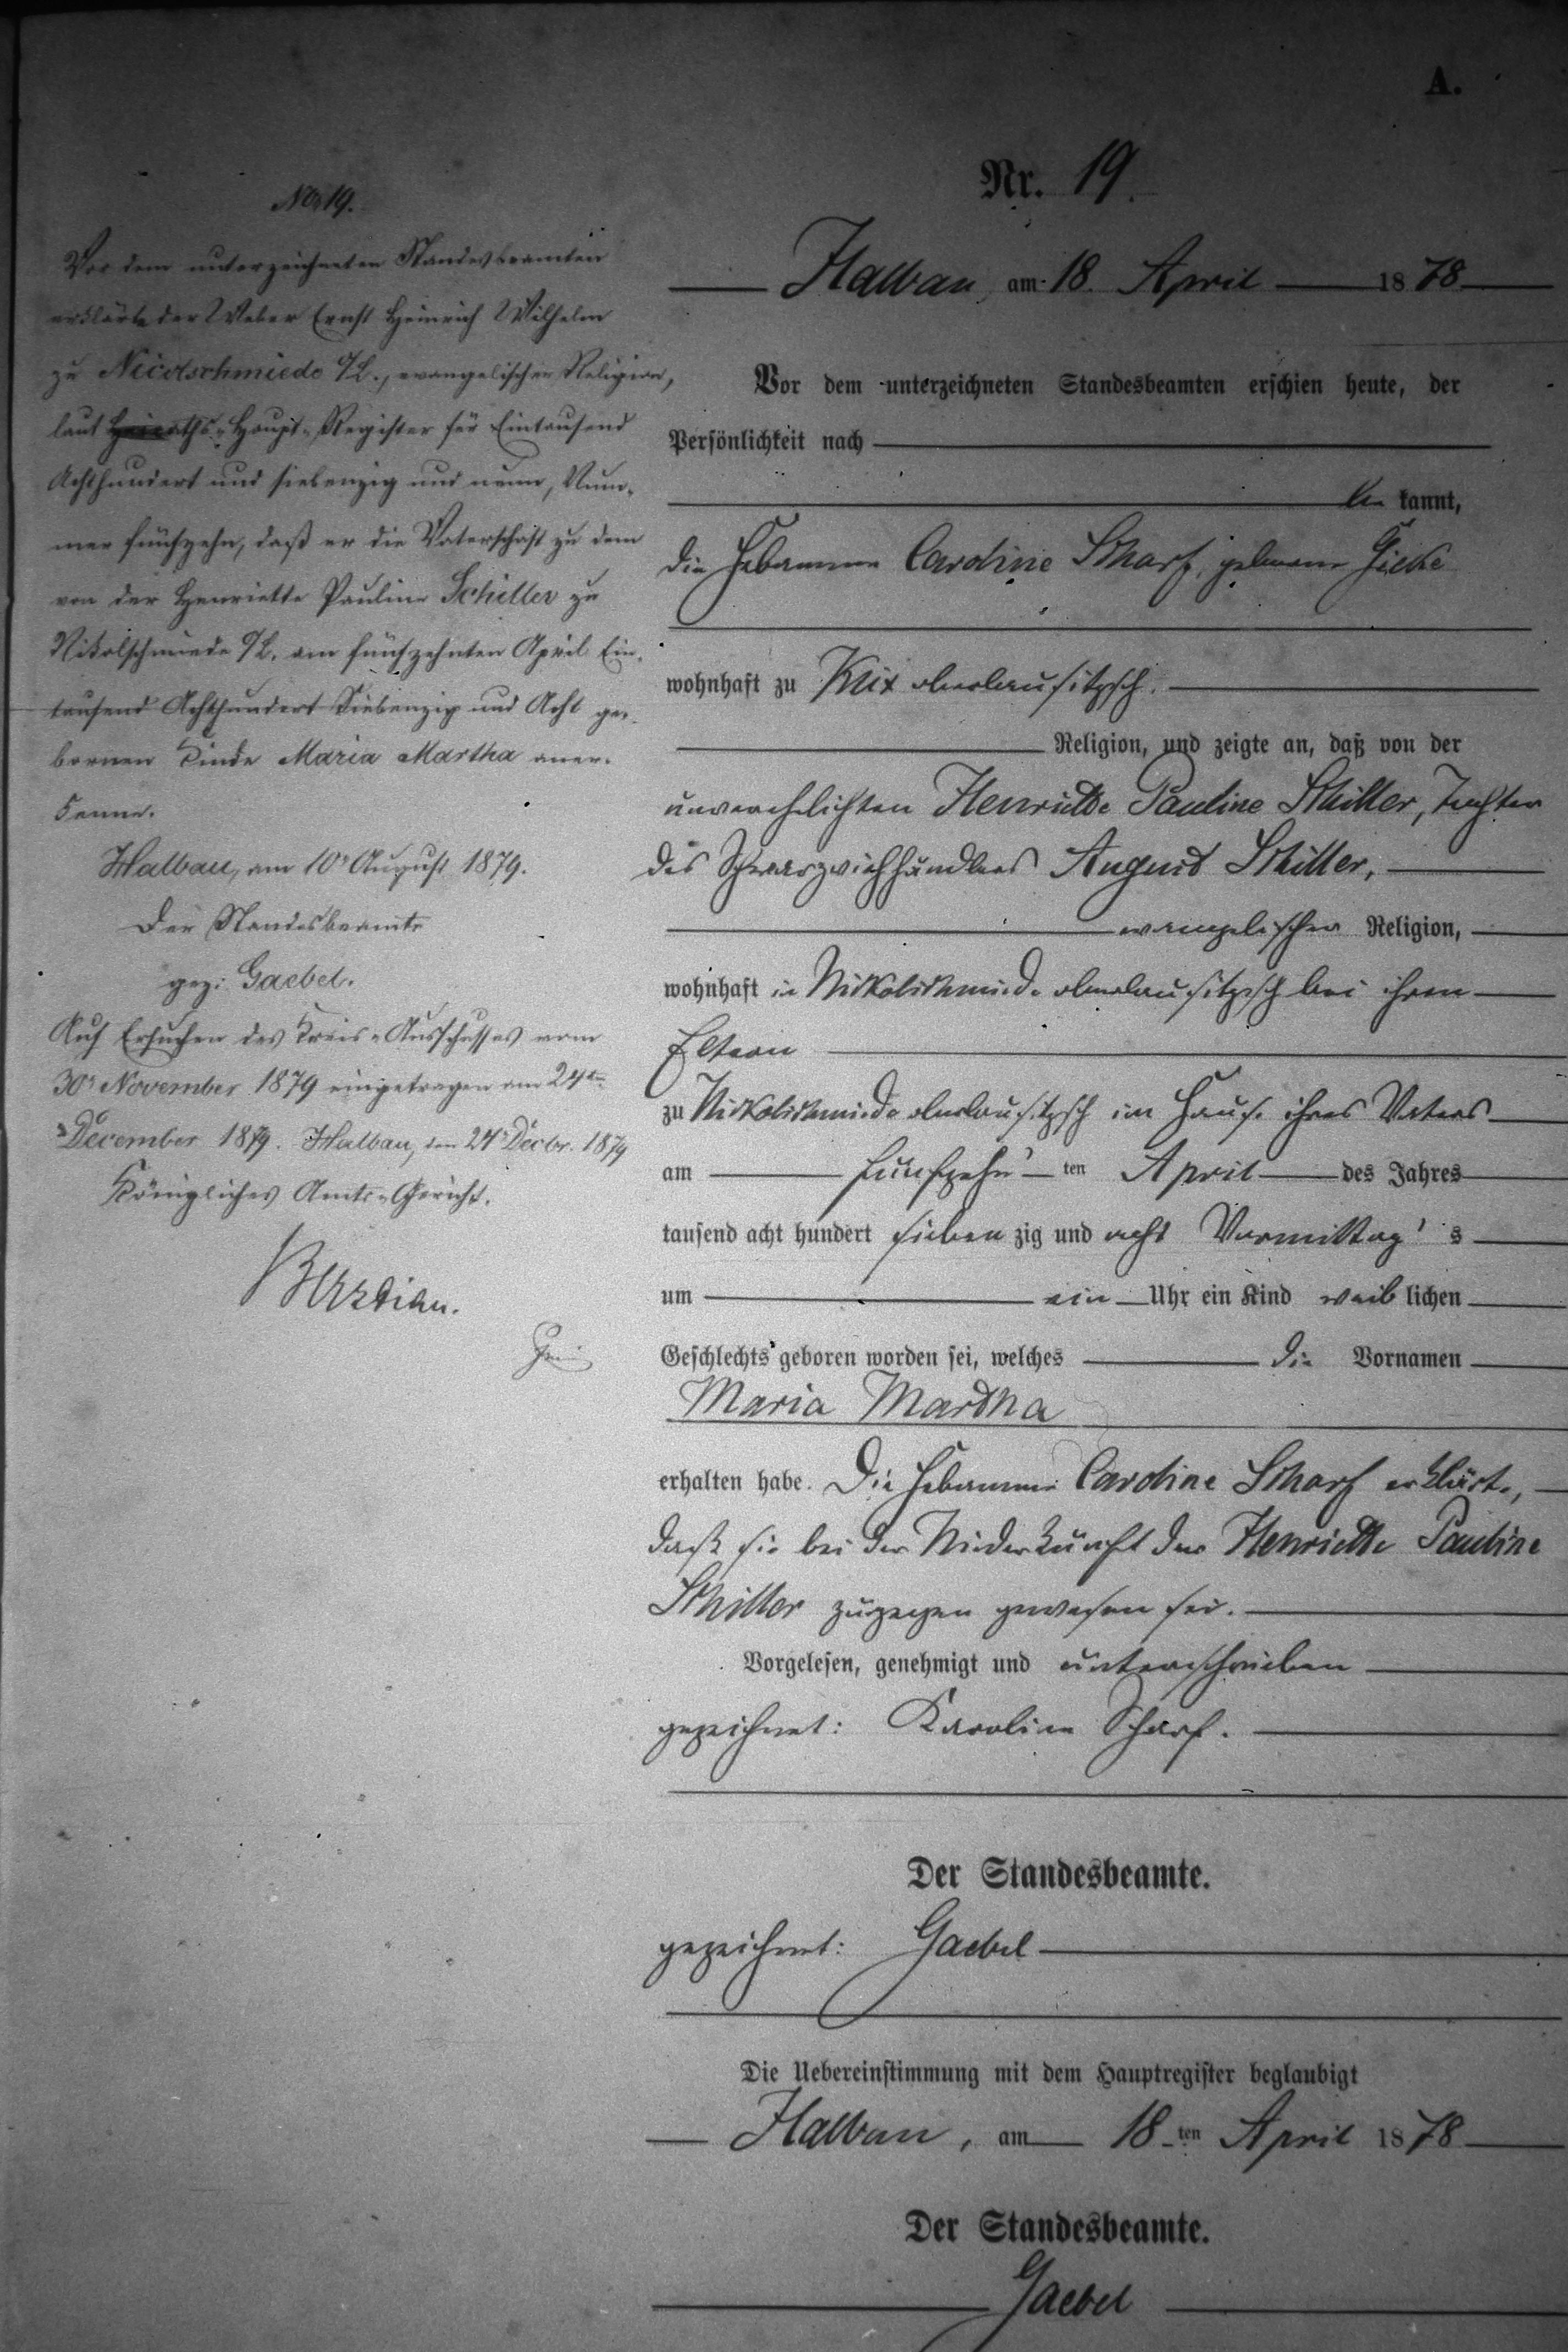 A.
No 19.
Vor dem unterzeichneten Standesbeamten
erklärte der Weber Ernst Heinrich Wilhelm
zu Nicolschmiede O/L., evangelischer Religion,
laut Heiraths-Haupt-Register für Eintausend
Achthundert und siebenzig und neun, Num-
mer fünfzehn, daß er die Vaterschaft zu dem
von der Henriette Pauline Schiller zu
Nikolschmiede O/L. am fünfzehnten April Ein-
tausend Achthundert Siebenzig und Acht ge-
bornen Kinde Maria Martha aner-
kenne.
Halbau, am 10t August 1879.
Der Standesbeamte
gez: Gaebel.
Auf Ersuchen des Kreis-Ausschusses vom
30t November 1879 eingetragen am 24ten
December 1879. Halbau, den 24t Decbr. 1879
Königliches Amts-Gericht.
Nr. 19.
Halbau, am 18. April 1878
Vor dem unterzeichneten Standesbeamten erschien heute, der
Persönlichkeit nach
be kannt,
die Hebamme Caroline Scharf, geborene
wohnhaft zu Klix oberlausitzsch.
Religion, und zeigte an, daß von der
unverehelichten Henriette Pauline Schiller, Tochter
des Schwarzviehhändlers August Schiller,
evangelischer Religion,
wohnhaft in Nickolschmiede oberlausitzsch bei ihren
Eltern
zu Nickolschmiede oberlausitzsch im Hause ihres Vaters
am fünfzehn ten April des Jahres
tausend acht hundert sieben zig und acht Vormittag s
um ein Uhr ein Kind weib lichen
Geschlechts geboren worden sei, welches die Vornamen
Maria Martha
erhalten habe. Die Hebamme Caroline Scharf erklärte,
daß sie bei der Niederkunft der Henriette Pauline
Schiller zugegen gewesen sei.
Vorgelesen, genehmigt und unterschrieben
gezeichnet: Karoline Scharf.
Der Standesbeamte.
gezeichnet: Gaebel
Die Uebereinstimmung mit dem Hauptregister beglaubigt
Halbau, am 18 ten April 1878
Der Standesbeamte.
Gaebel